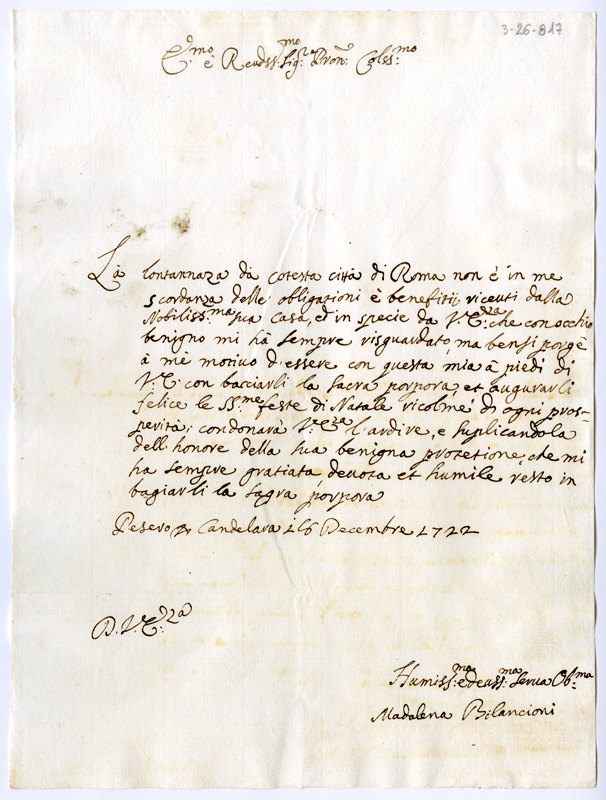 3-26-817
E.mo è Reudss.mo Sig.re Pron: Colss.mo
Là lontannaza da cotesta città di Roma non è in me
scordanza delle obligazioni è benefitij riceuti dalla
Nobiliss:ma sua casa, ed in specie da V.E.za che con occhio
benigno mi hà sempre risguardato, ma bensi porgè
à mè motiuo d'essere con questa mia à piedi di
V.E. con bacciarli la sacra porpora, et augurarli
felice le SS.me feste di Natale ricolme di ogni pros-
perità; condonarà V.E.za l'ardire, e suplicandola
dell'honore della sua benigna protetione, che mi
ha sempre gratiata deuota et humile resto in
bagiarli la sagra porpora
Pesero p Candelara 16 Decembre 1722
D.V.E.za
Humiss:ma e deuss:ma Serua Ob:ma
Madalena Bilancioni